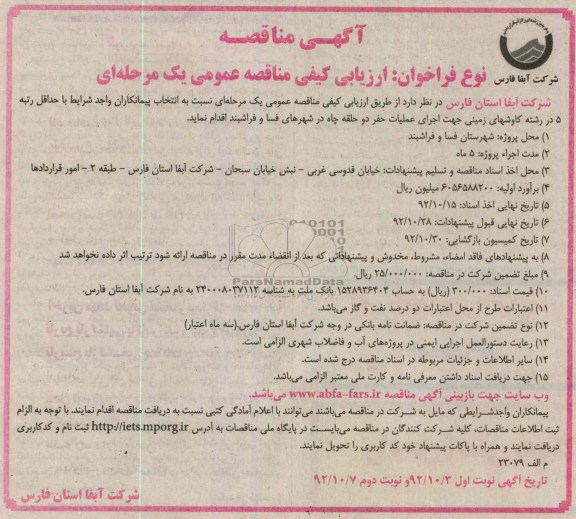 آگهـی مناقصـه
نوع فراخوان: ارزیابی کیفی مناقصه عمومی یک مرحله‌ای
شرکت آبفا فارس
شرکت آبفا استان فارس در نظر دارد از طریق ارزیابی کیفی مناقصه عمومی یک مرحله‌ای نسبت به انتخاب پیمانکاران واجد شرایط با حداقل رتبه
۵ در رشته کاوشهای زمینی جهت اجرای عملیات حفر دو حلقه چاه در شهرهای فسا و فراشبند اقدام نماید.
۱) محل پروژه: شهرستان فسا و فراشبند
۲) مدت اجراء پروژه: ۵ ماه
۳) محل اخذ اسناد مناقصه و تسلیم پیشنهادات: خیابان قدوسی غربی – نبش خیابان سبحان – شرکت آبفا استان فارس – طبقه ۲ – امور قراردادها
۴) برآورد اولیه: ۶۰۵۶۵۸۸۲۰۰ میلیون ریال
۵) تاریخ نهایی اخذ اسناد: ۹۲/۱۰/۱۵
۶) تاریخ نهایی قبول پیشنهادات: ۹۲/۱۰/۲۸
۷) تاریخ کمیسیون بازگشایی: ۹۲/۱۰/۳۰
۸) به پیشنهادهای فاقد امضاء، مشروط، مخدوش و پیشنهاداتی که بعد از انقضاء مدت مقرر در مناقصه ارائه شود ترتیب اثر داده نخواهد شد
۹) مبلغ تضمین شرکت در مناقصه: ۲۵/۰۰۰/۰۰۰ ریال.
۱۰) قیمت اسناد: ۳۰۰/۰۰۰ (ریال) به حساب ۱۵۲۸۹۳۶۴۰۴ بانک ملت به شناسه ۲۴۰۰۰۸۰۳۷۱۱۲ به نام شرکت آبفا استان فارس.
۱۱) اعتبارات طرح از محل اعتبارات دو درصد نفت و گاز می‌باشد.
۱۲) نوع تضمین شرکت در مناقصه: ضمانت نامه بانکی در وجه شرکت آبفا استان فارس.(سه ماه اعتبار)
۱۳) رعایت دستورالعمل اجرایی ایمنی در پروژه‌های آب و فاضلاب شهری الزامی است.
۱۴) سایر اطلاعات و جزئیات مربوطه در اسناد مناقصه درج شده است.
۱۵) جهت دریافت اسناد داشتن معرفی نامه و کارت ملی معتبر الزامی می‌باشد.
وب سایت جهت بازبینی آگهی مناقصه www.abfa-fars.ir می‌باشد.
پیمانکاران واجدشرایطی که مایل به شرکت در مناقصه می‌باشند می‌توانند با اعلام آمادگی کتبی نسبت به دریافت مناقصه اقدام نمایند. با توجه به الزام
ثبت اطلاعات مناقصات، کلیه شرکت کنندگان در مناقصه می‌بایست در پایگاه ملی مناقصات به آدرس http://iets.mporg.ir ثبت نام و کدکاربری
دریافت نمایند و همراه با پاکات پیشنهاد خود کد کاربری را تحویل نمایند.
م الف ۲۳۰۷۹
تاریخ آگهی نوبت اول ۹۲/۱۰/۳و نوبت دوم ۹۲/۱۰/۷
شرکت آبفا استان فارس
ParsNamadData